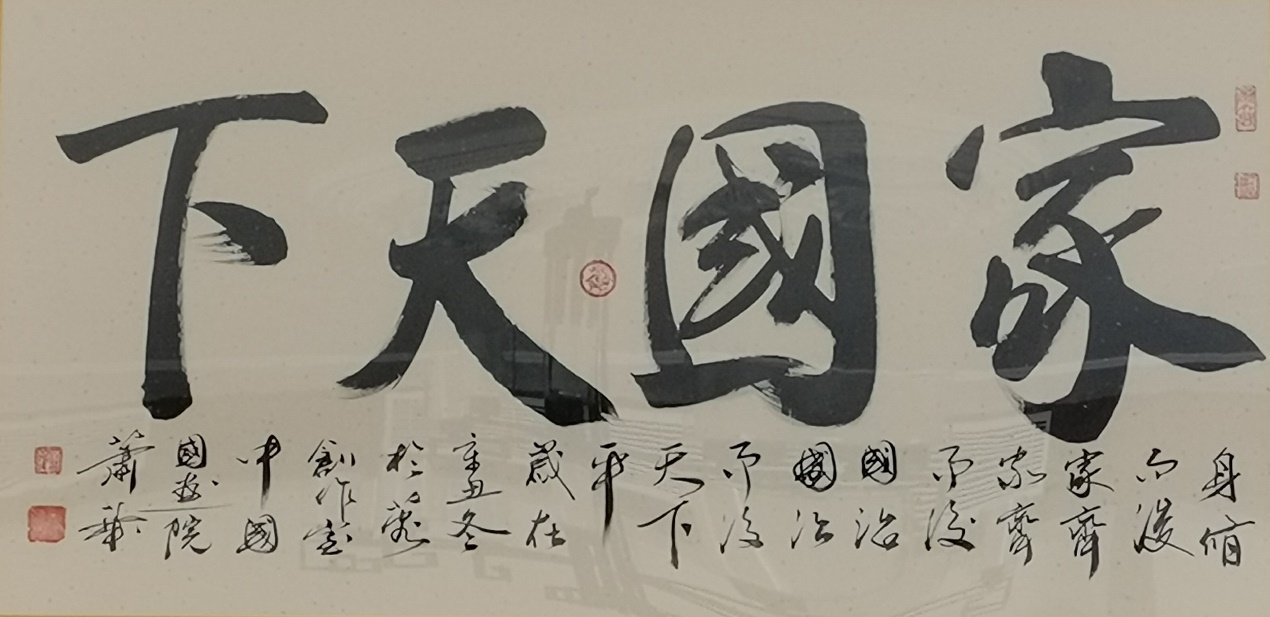 家國天下
身脩
而後
家齊
家齊
而後
國治
國治
而後
天下
平
歲在
辛丑冬
於
創作室
中國
國畫院
蕭華